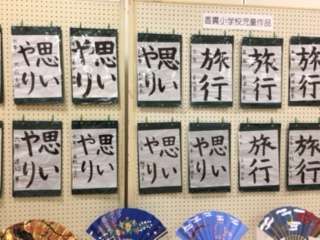 香貫小学校児童作品
思いやり
思いやり
思いやり
旅行
旅行
旅行
思いやり
思いやり
思いやり
思いやり
旅行
旅行